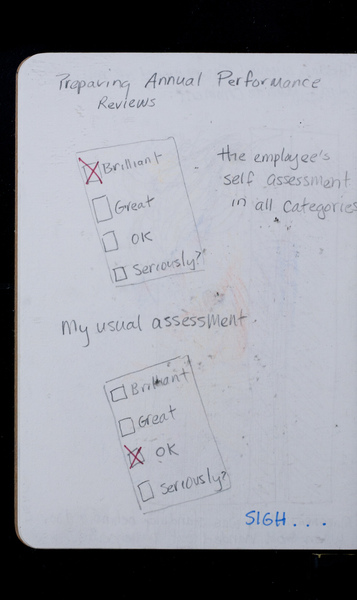 Preparing Annual Performance
Reviews
Brilliant
Great
OK
Seriously?
- the employee's
self assessment
in all categories
My usual assessment.
Brilliant
Great
OK
Seriously?
SIGH...